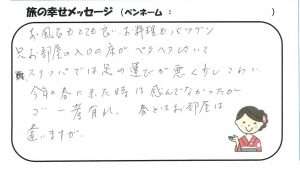 旅の幸せメッセージ（ペンネーム：　）
お風呂もとても良い、お料理もバツグン
只お部屋の入口の床がペタペタしていて
スリッパでは足の運びが悪く少しこわい
今年の春に来た時は感んでなかったが
ご一考有れ、春とはお部屋は
違いますが、